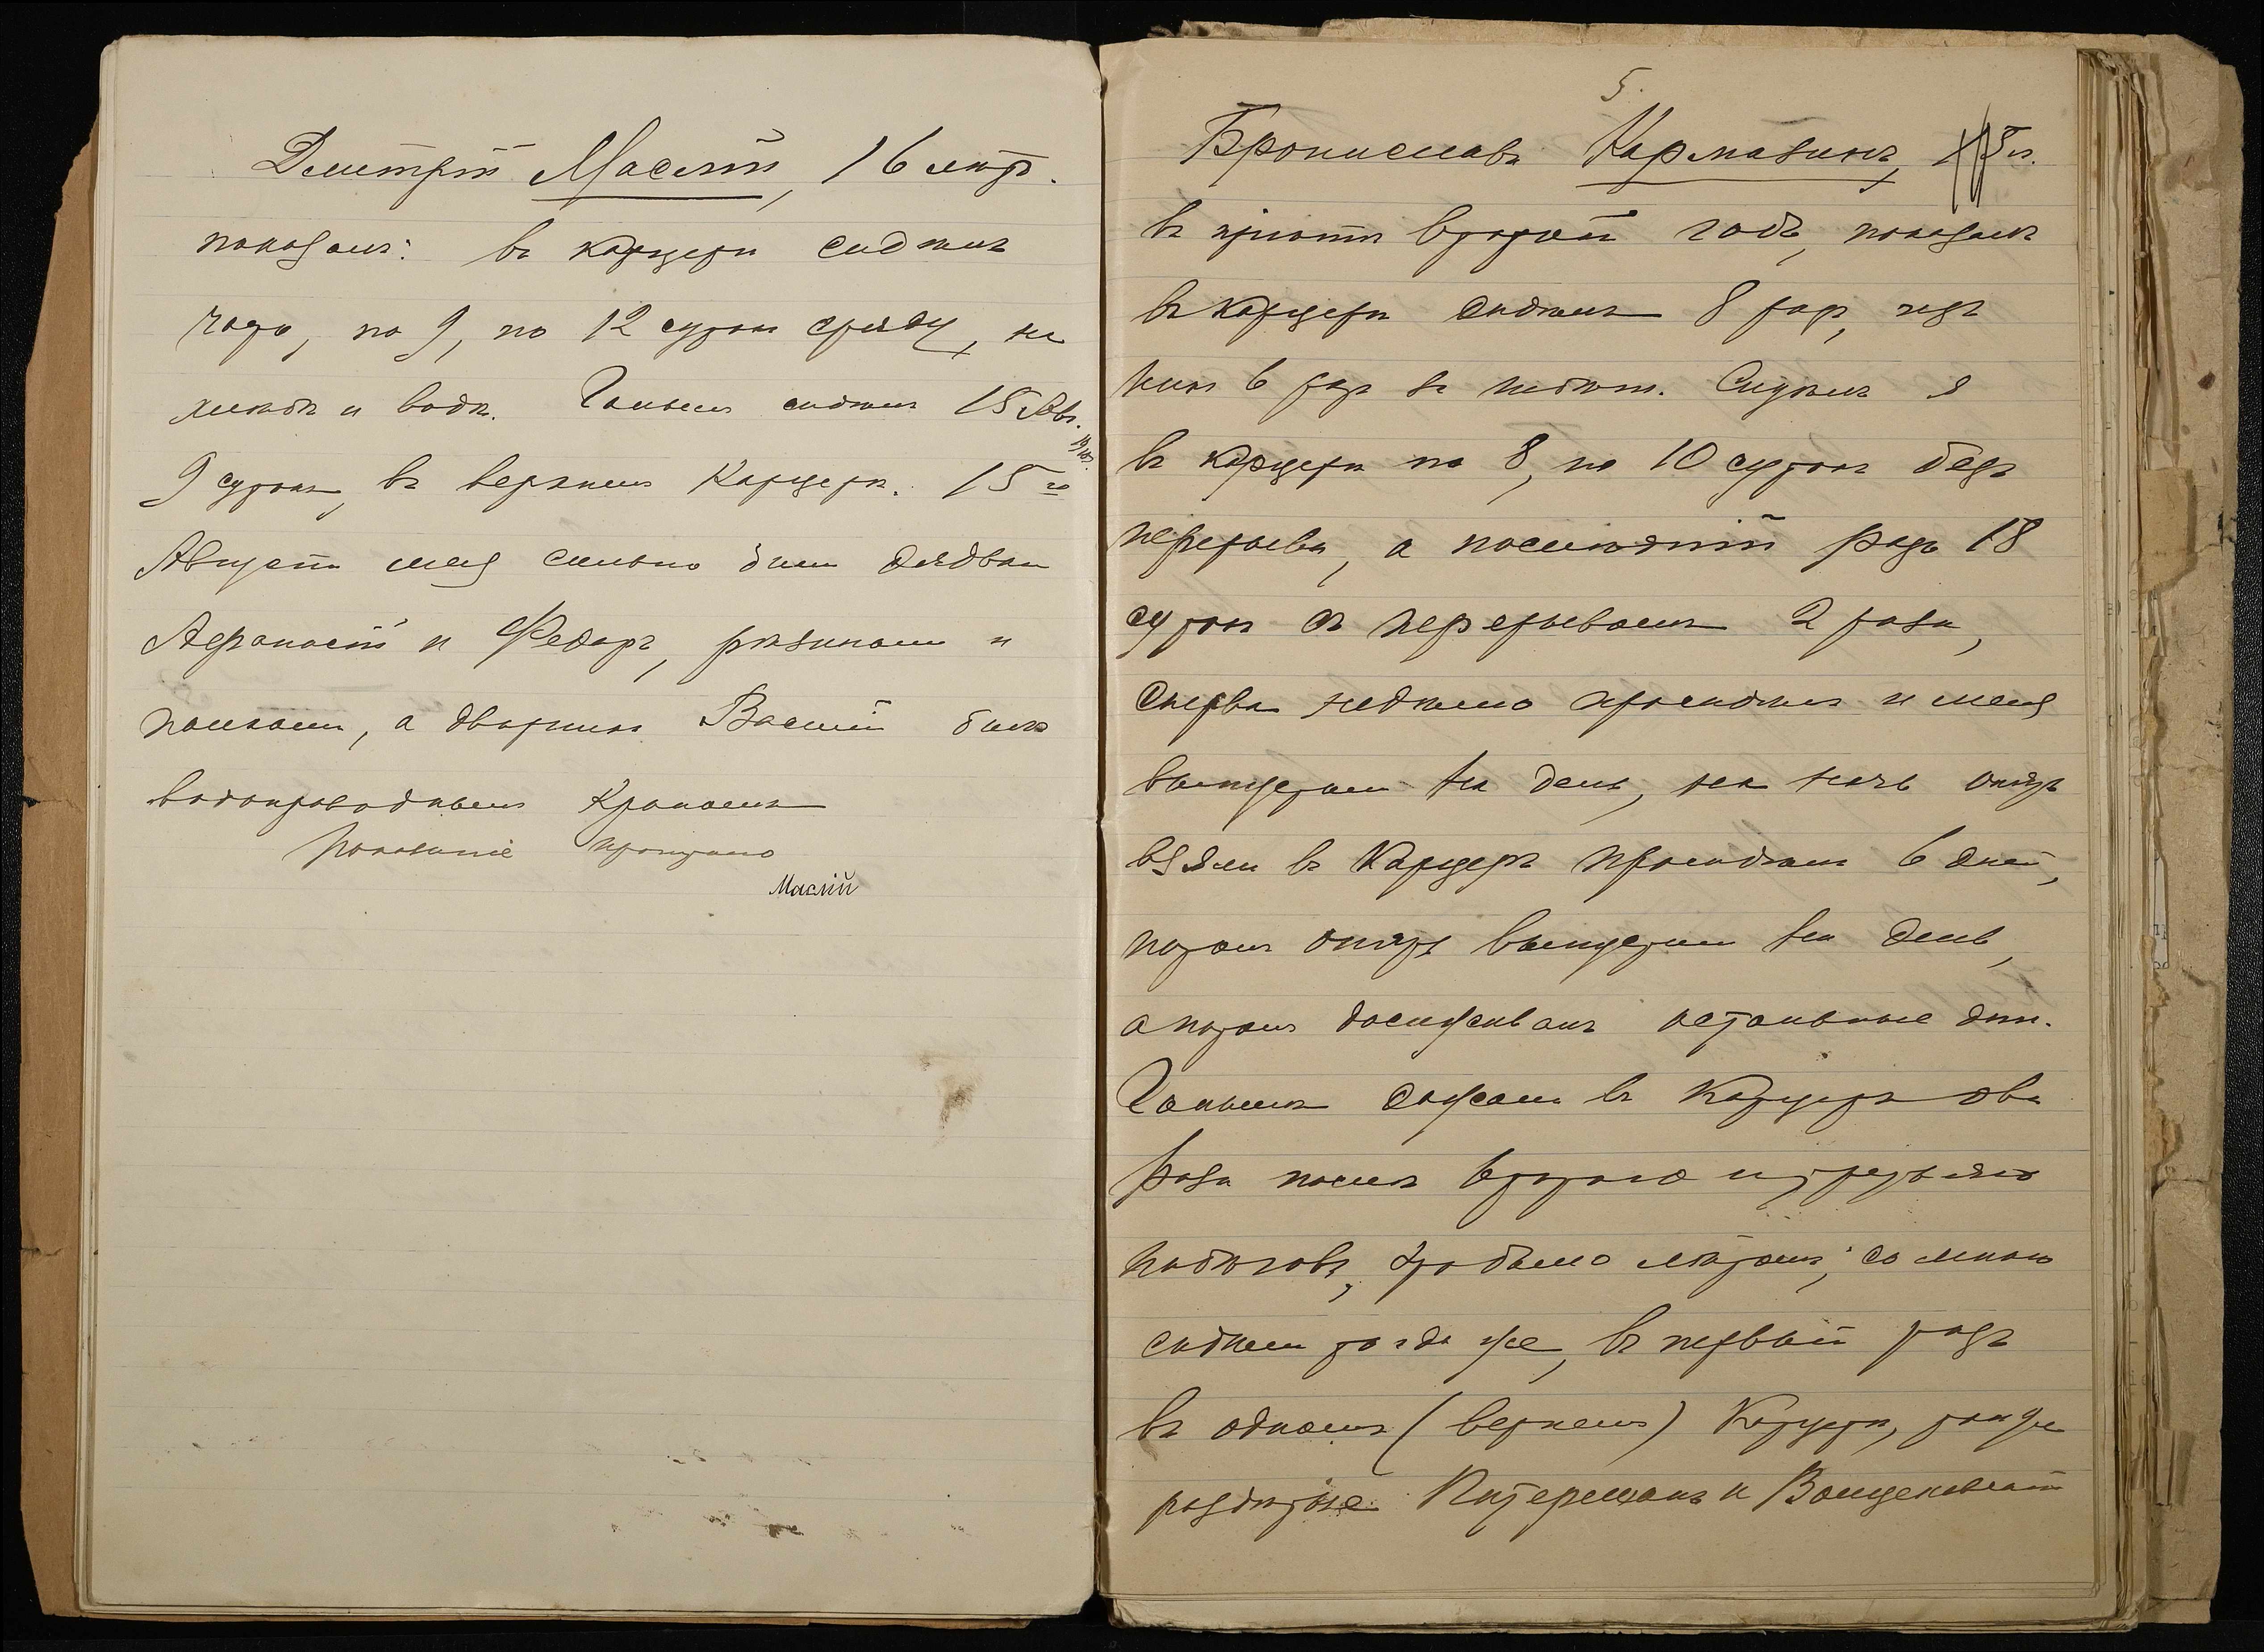 Дмитрій Маслій, 16 лѣтъ.
показалъ: въ карцерѣ сидѣлъ
часто, по 9, по 12 сутокъ сряду, на
хлѣбѣ и водѣ. Голымъ сидѣлъ 15 Авг.
1910 г.
9 сутокъ, въ верхнемъ карцерѣ. 15го
Августа меня сильно били дядьки
Афанасій и Федоръ, резинами и
палками, а дворникъ Василій билъ
водопроводнымъ краномъ
Показаніе прочитано
Маслій
5.
Брониславъ Кармазинъ, 15 л.
въ пріютѣ второй годъ, показалъ
въ карцерѣ сидѣлъ 8 разъ, изъ
нихъ 6 разъ за побѣги. Сидѣлъ я
въ карцерѣ по 8, по 10 сутокъ безъ
перерыва, а послѣдній разъ 18
сутокъ съ перерывами 2 раза,
сперва недѣлю просидѣлъ и меня
выпустили на день, на ночь опять
взяли въ карцеръ просидѣлъ 6 дней,
потомъ опять выпустили на день,
а потомъ досиживалъ остальные дни.
Голымъ сажали въ карцеръ два
раза послѣ второго и третьяго
побѣговъ, это было лѣтомъ; со мною
сидѣли тогда же, въ первый разъ
въ одномъ (верхнемъ) карцерѣ, также
раздѣтые